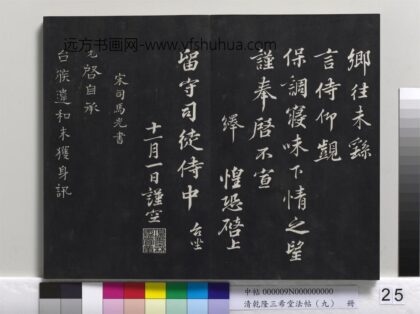 远方书画网-www.yfshuhua.com
鄉往未繇
言侍仰觀
保調寢味下情之望
謹奉啓不宣
絳 惶恐啓上
留守司徒侍中 台坐
十一月一日謹空
宋司馬光書
光啓自承
台候違和未獲身訊
中帖 000009N000000000
清乾隆三希堂法帖（九） 冊
25